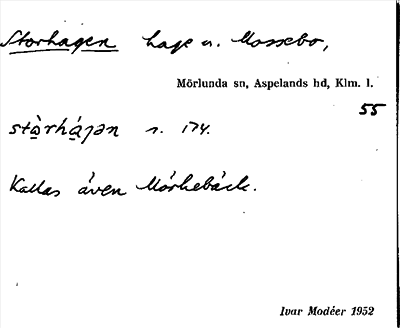 Storhagen hage u. Mossebo,
Mörlunda sn, Aspelands hd, Klm. l.
55
stòrhágən s. 174.
Kallas även Mörkebäck.
Ivar Modéer 1952